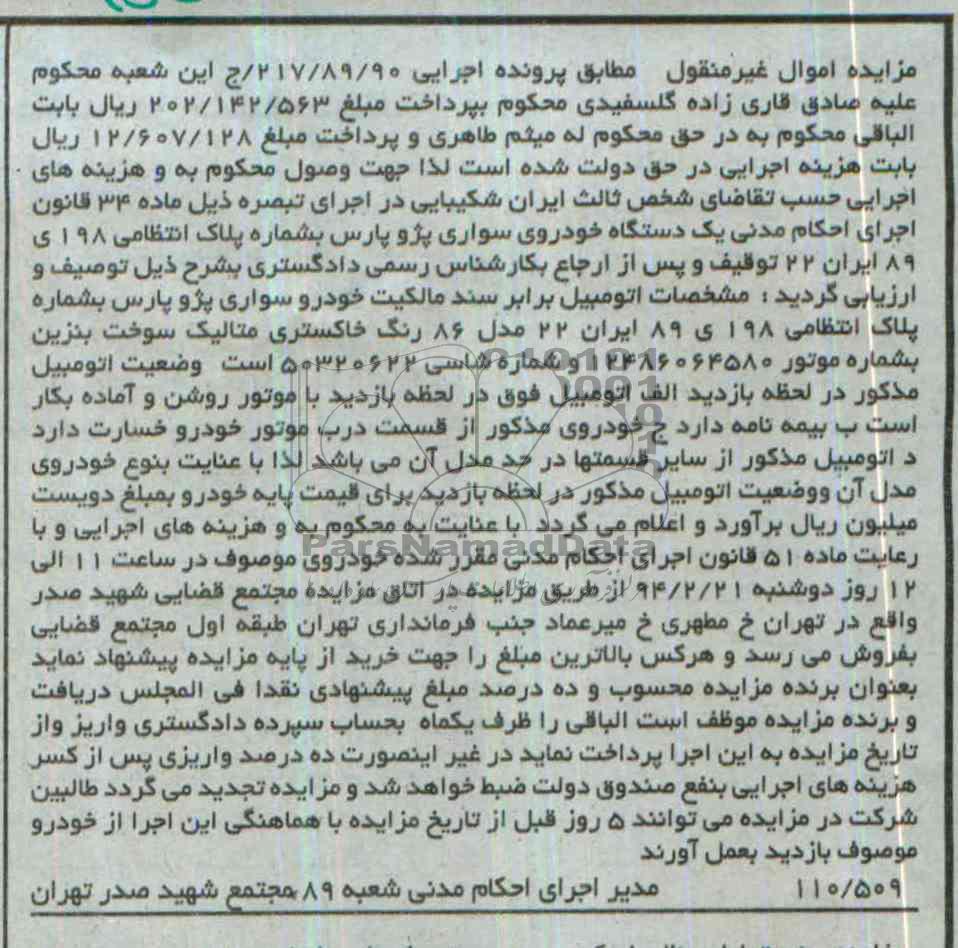 مزایده اموال غیرمنقول مطابق پرونده اجرایی ۲۱۷/۸۹/۹۰/ج این شعبه محکوم
علیه صادق قاری زاده گلسفیدی محکوم بپرداخت مبلغ ۲۰۲/۱۴۲/۵۶۳ ریال بابت
الباقی محکوم به در حق محکوم له میثم طاهری و پرداخت مبلغ ۱۲/۶۰۷/۱۲۸ ریال
بابت هزینه اجرایی در حق دولت شده است لذا جهت وصول محکوم به و هزینه های
اجرایی حسب تقاضای شخص ثالث ایران شکیبایی در اجرای تبصره ذیل ماده ۳۴ قانون
اجرای احکام مدنی یک دستگاه خودروی سواری پژو پارس بشماره پلاک انتظامی ۱۹۸ ی
۸۹ ایران ۲۲ توقیف و پس از ارجاع بکارشناس رسمی دادگستری بشرح ذیل توصیف و
ارزیابی گردید : مشخصات اتومبیل برابر سند مالکیت خودرو سواری پژو پارس بشماره
پلاک انتظامی ۱۹۸ ی ۸۹ ایران ۲۲ مدل ۸۶ رنگ خاکستری متالیک سوخت بنزین
بشماره موتور ۱۲۴۸۶۰۶۴۵۸۰ و شماره شاسی ۵۰۳۲۰۶۲۲ است وضعیت اتومبیل
مذکور در لحظه بازدید الف اتومبیل فوق در لحظه بازدید با موتور روشن و آماده بکار
است ب بیمه نامه دارد ج خودروی مذکور از قسمت درب موتور خودرو خسارت دارد
د اتومبیل مذکور از سایر قسمتها در حد مدل آن می باشد لذا با عنایت بنوع خودروی
مدل آن ووضعیت اتومبیل مذکور در لحظه بازدید برای قیمت پایه خودرو بمبلغ دویست
میلیون ریال برآورد و اعلام می گردد با عنایت به محکوم به و هزینه های اجرایی و با
رعایت ماده ۵۱ قانون اجرای احکام مدنی مقرر شده خودروی موصوف در ساعت ۱۱ الی
۱۲ روز دوشنبه ۹۴/۲/۲۱ از طریق مزایده در اتاق مزایده مجتمع قضایی شهید صدر
واقع در تهران خ مطهری خ میرعماد جنب فرمانداری تهران طبقه اول مجتمع قضایی
بفروش می رسد و هرکس بالاترین مبلغ را جهت خرید از پایه مزایده پیشنهاد نماید
بعنوان برنده مزایده محسوب و ده درصد مبلغ پیشنهادی نقدا فی المجلس دریافت
و برنده مزایده موظف است الباقی را ظرف یکماه بحساب سپرده دادگستری واریز واز
تاریخ مزایده به این اجرا پرداخت نماید در غیر اینصورت ده درصد واریزی پس از کسر
هزینه های اجرایی بنفع صندوق دولت ضبط خواهد شد و مزایده تجدید می گردد طالبین
شرکت در مزایده می توانند ۵ روز قبل از تاریخ مزایده با هماهنگی این اجرا از خودرو
موصوف بازدید بعمل آورند
۱۱۰/۵۰۹ مدیر اجرای احکام مدنی شعبه ۸۹ مجتمع شهید صدر تهران
ParsNamadData